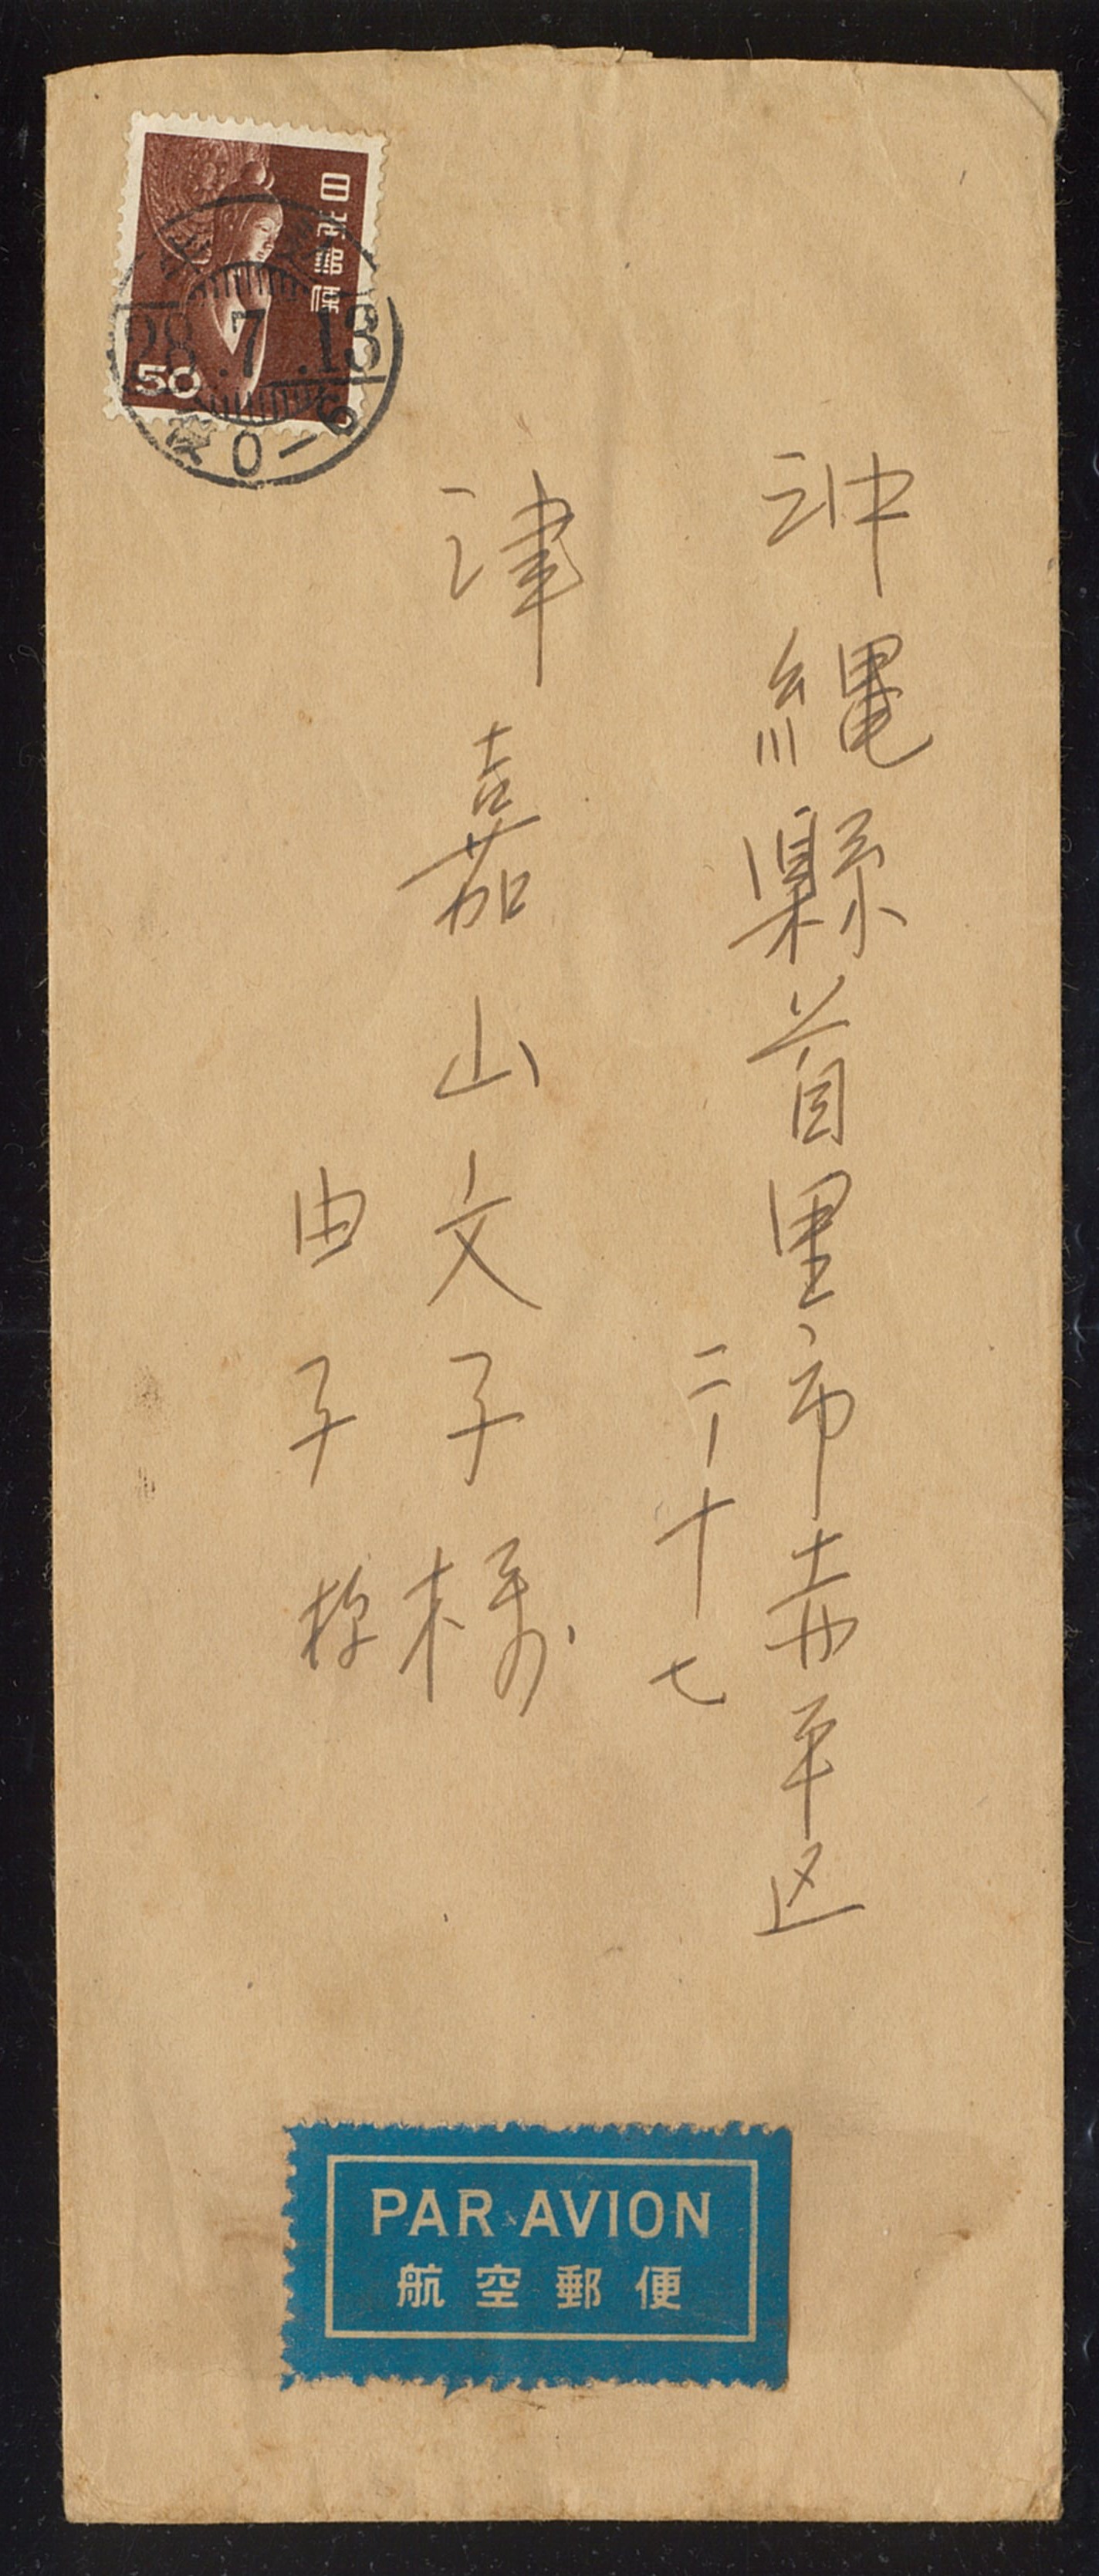 日本郵便
50
28.7.13
后0-6
沖縄縣首里市赤平区
二ノ十七
津嘉山文子様
由子様
PAR AVION
航空郵便